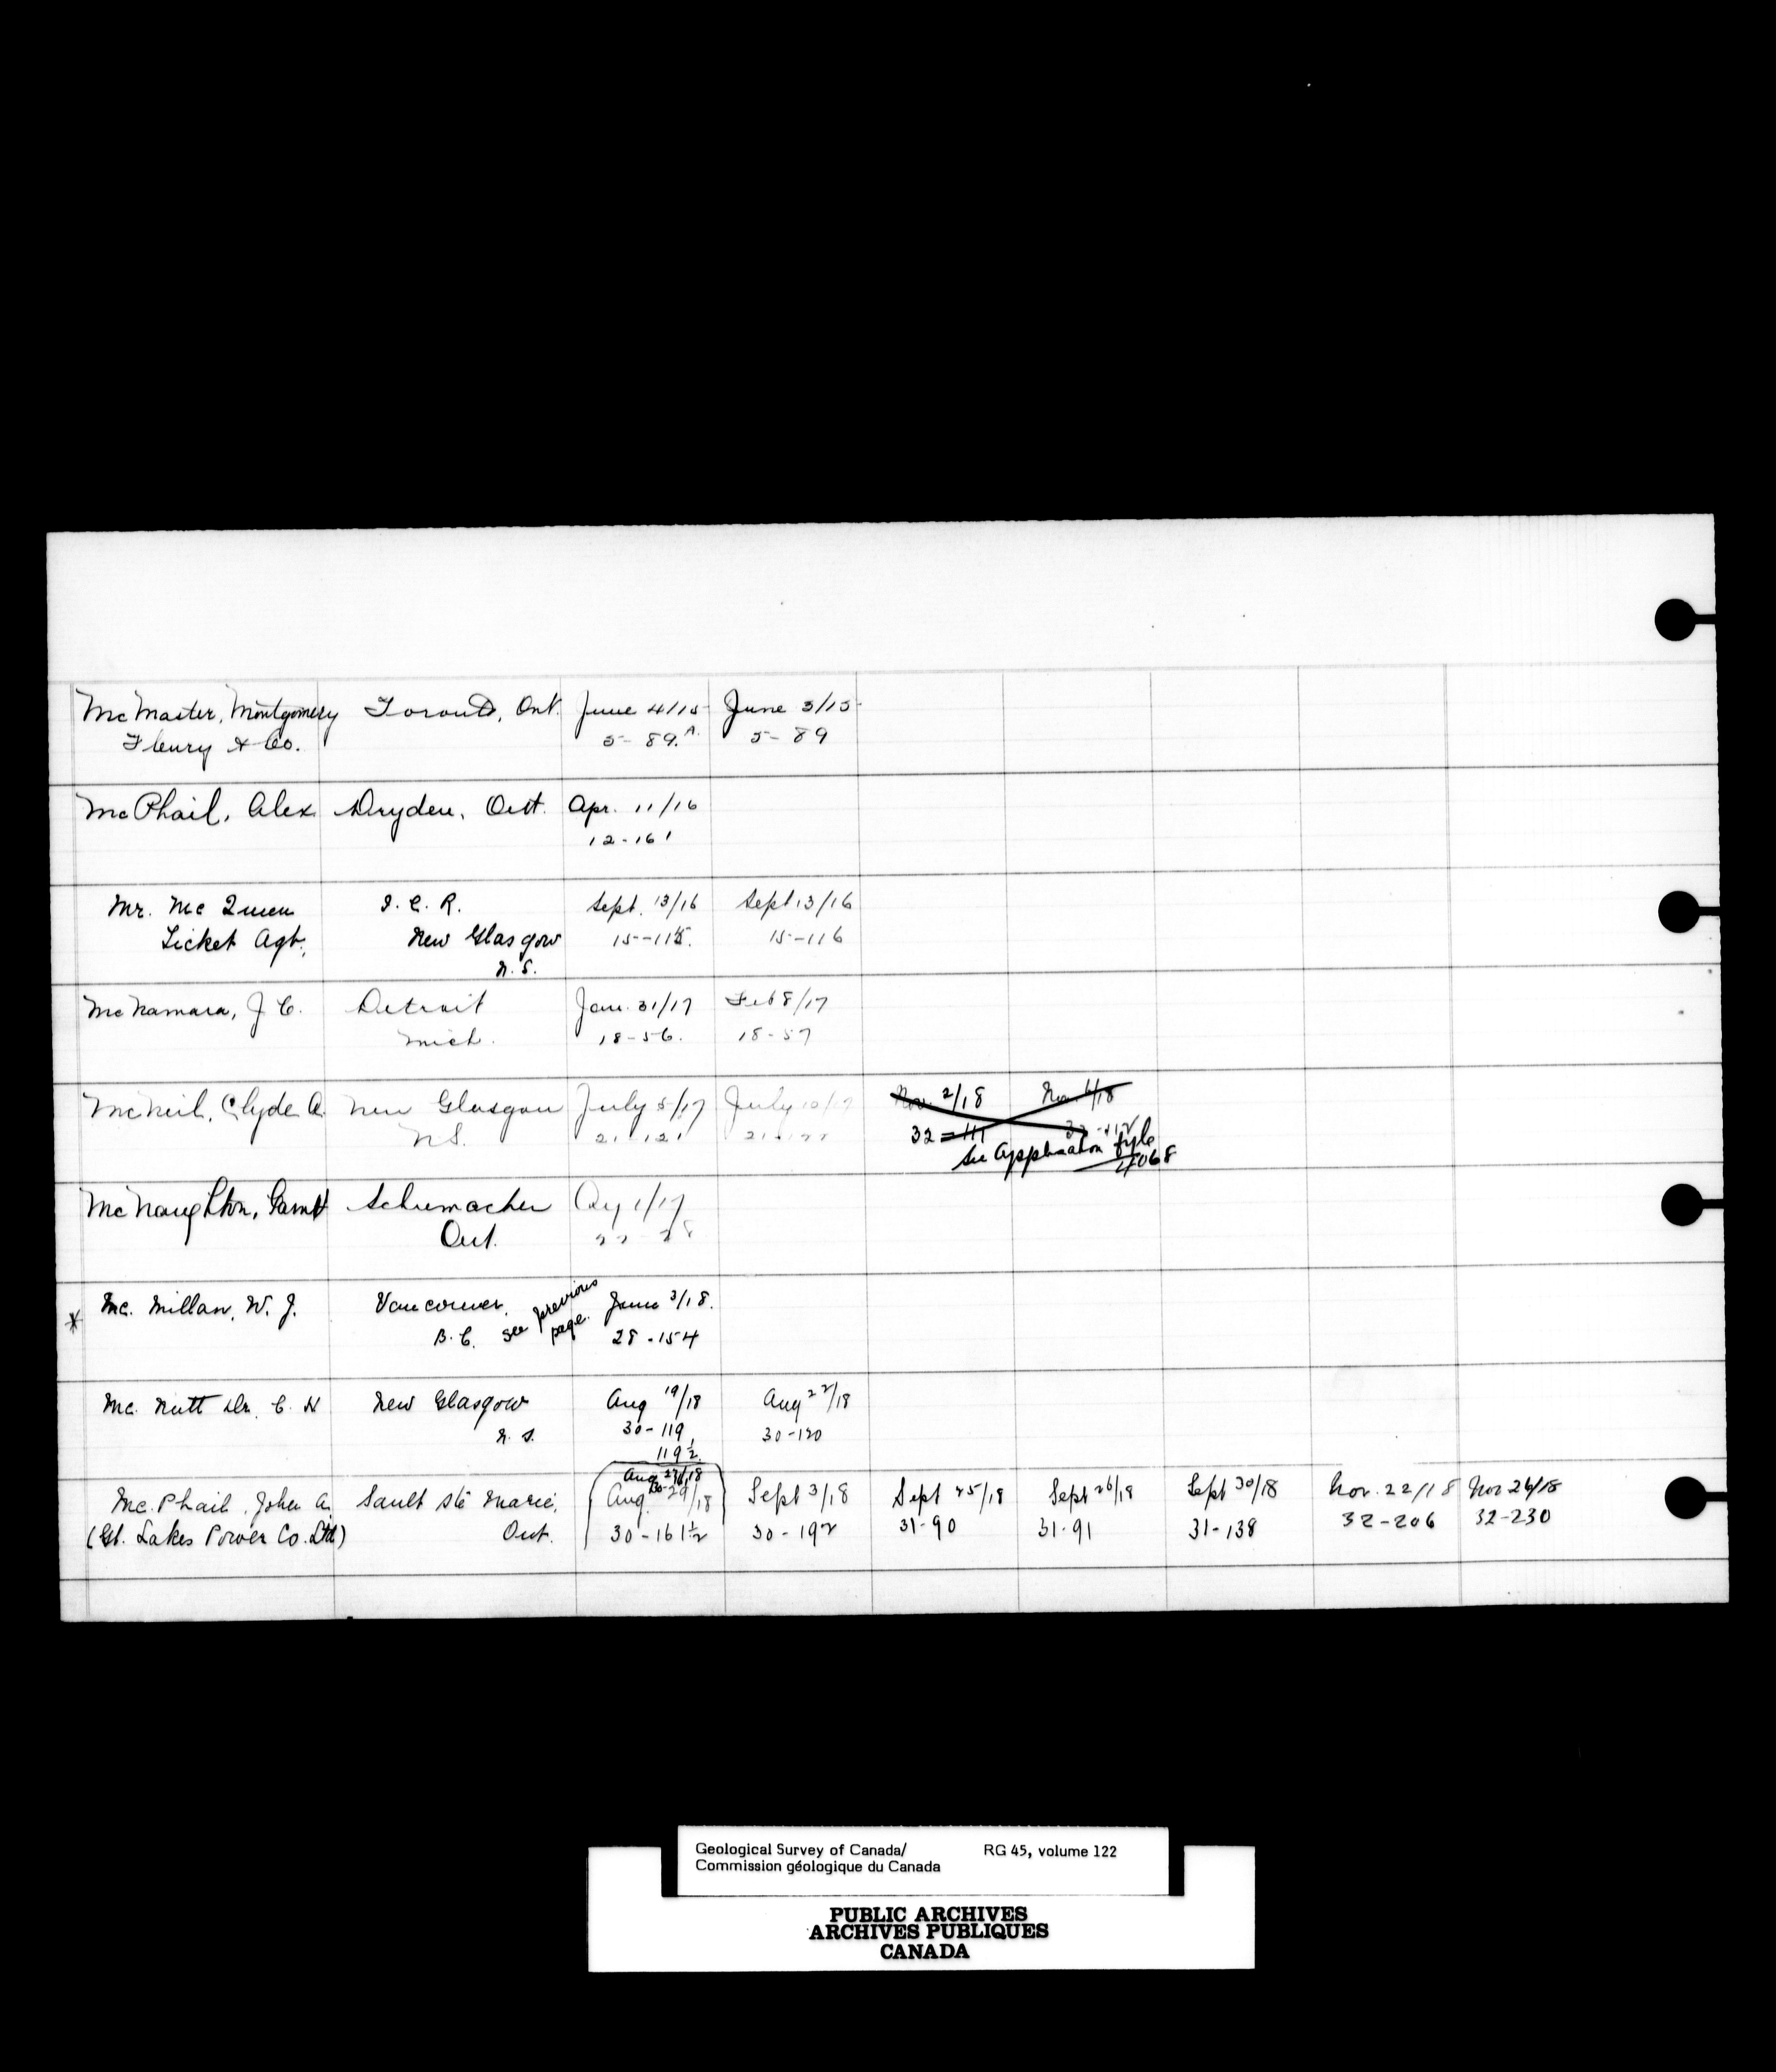 McMaster, Montgomery Toronto, Ont. June 4/15 June 3/15
Fleury & Co. 5-89.A 5-89
McPhail, Alex Dryden, Ont. Apr. 11/16
12-161
Mr. McQueen I.C.R. Sept. 13/16 Sept 13/16
Ticket Agt. New Glasgow 15-115. 15-116
N.S.
McNamara, J C. Detroit Jan. 31/17 Feb 8/17
Mich. 18-56. 18-57
McNeil, Clyde A. New Glasgow July 5/17 July 10/17 Nov. 2/18 Nov. /18
N.S. 21-121 32-111
See Application fyle
4068
McNaughton, Schumacher 1/17
Ont. 28
* Mc. Millan, W. J. Vancouver, see previous June 3/18.
B.C. page. 28-154
Mc. Nutt Dr. C. H New Glasgow Aug 19/18 Aug 22/18
N.S. 30-119 30-120
119½
Aug 27/18
Mc. Phail, John A. Sault Ste Marie, Aug. 29/18 Sept 3/18 Sept 25/18 Sept 26/18 Sept 30/18 Nov. 22/18 Nov 26/18
(Gt. Lakes Power Co. Ltd) Ont. 30-161½ 30-192 31-90 31-91 31-138 32-206 32-230
Geological Survey of Canada/ RG 45, volume 122
Commission géologique du Canada
PUBLIC ARCHIVES
ARCHIVES PUBLIQUES
CANADA